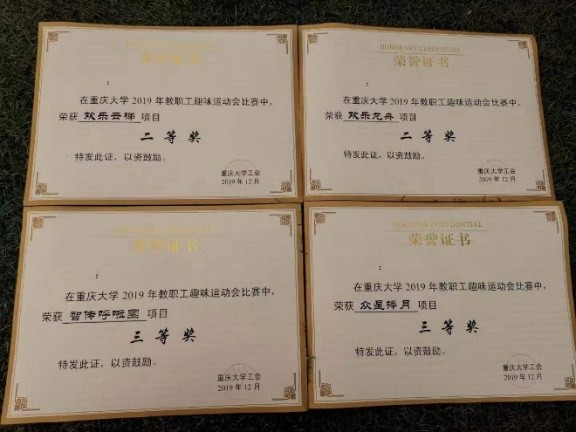 荣誉证书
:
在重庆大学 2019 年教职工趣味运动会比赛中,
荣获 欢乐云梯 项目
二等奖
特发此证,以资鼓励。
重庆大学工会
2019 年 12 月
HONORARY CREDENTIAL
荣誉证书
:
在重庆大学 2019 年教职工趣味运动会比赛中,
荣获 欢乐龙舟 项目
二等奖
特发此证,以资鼓励。
重庆大学工会
2019 年 12 月
荣誉证书
:
在重庆大学 2019 年教职工趣味运动会比赛中,
荣获 智传呼啦圈 项目
三等奖
特发此证,以资鼓励。
重庆大学工会
2019 年 12 月
HONORARY CREDENTIAL
荣誉证书
:
在重庆大学 2019 年教职工趣味运动会比赛中,
荣获 众星捧月 项目
三等奖
特发此证,以资鼓励。
重庆大学工会
2019 年 12 月